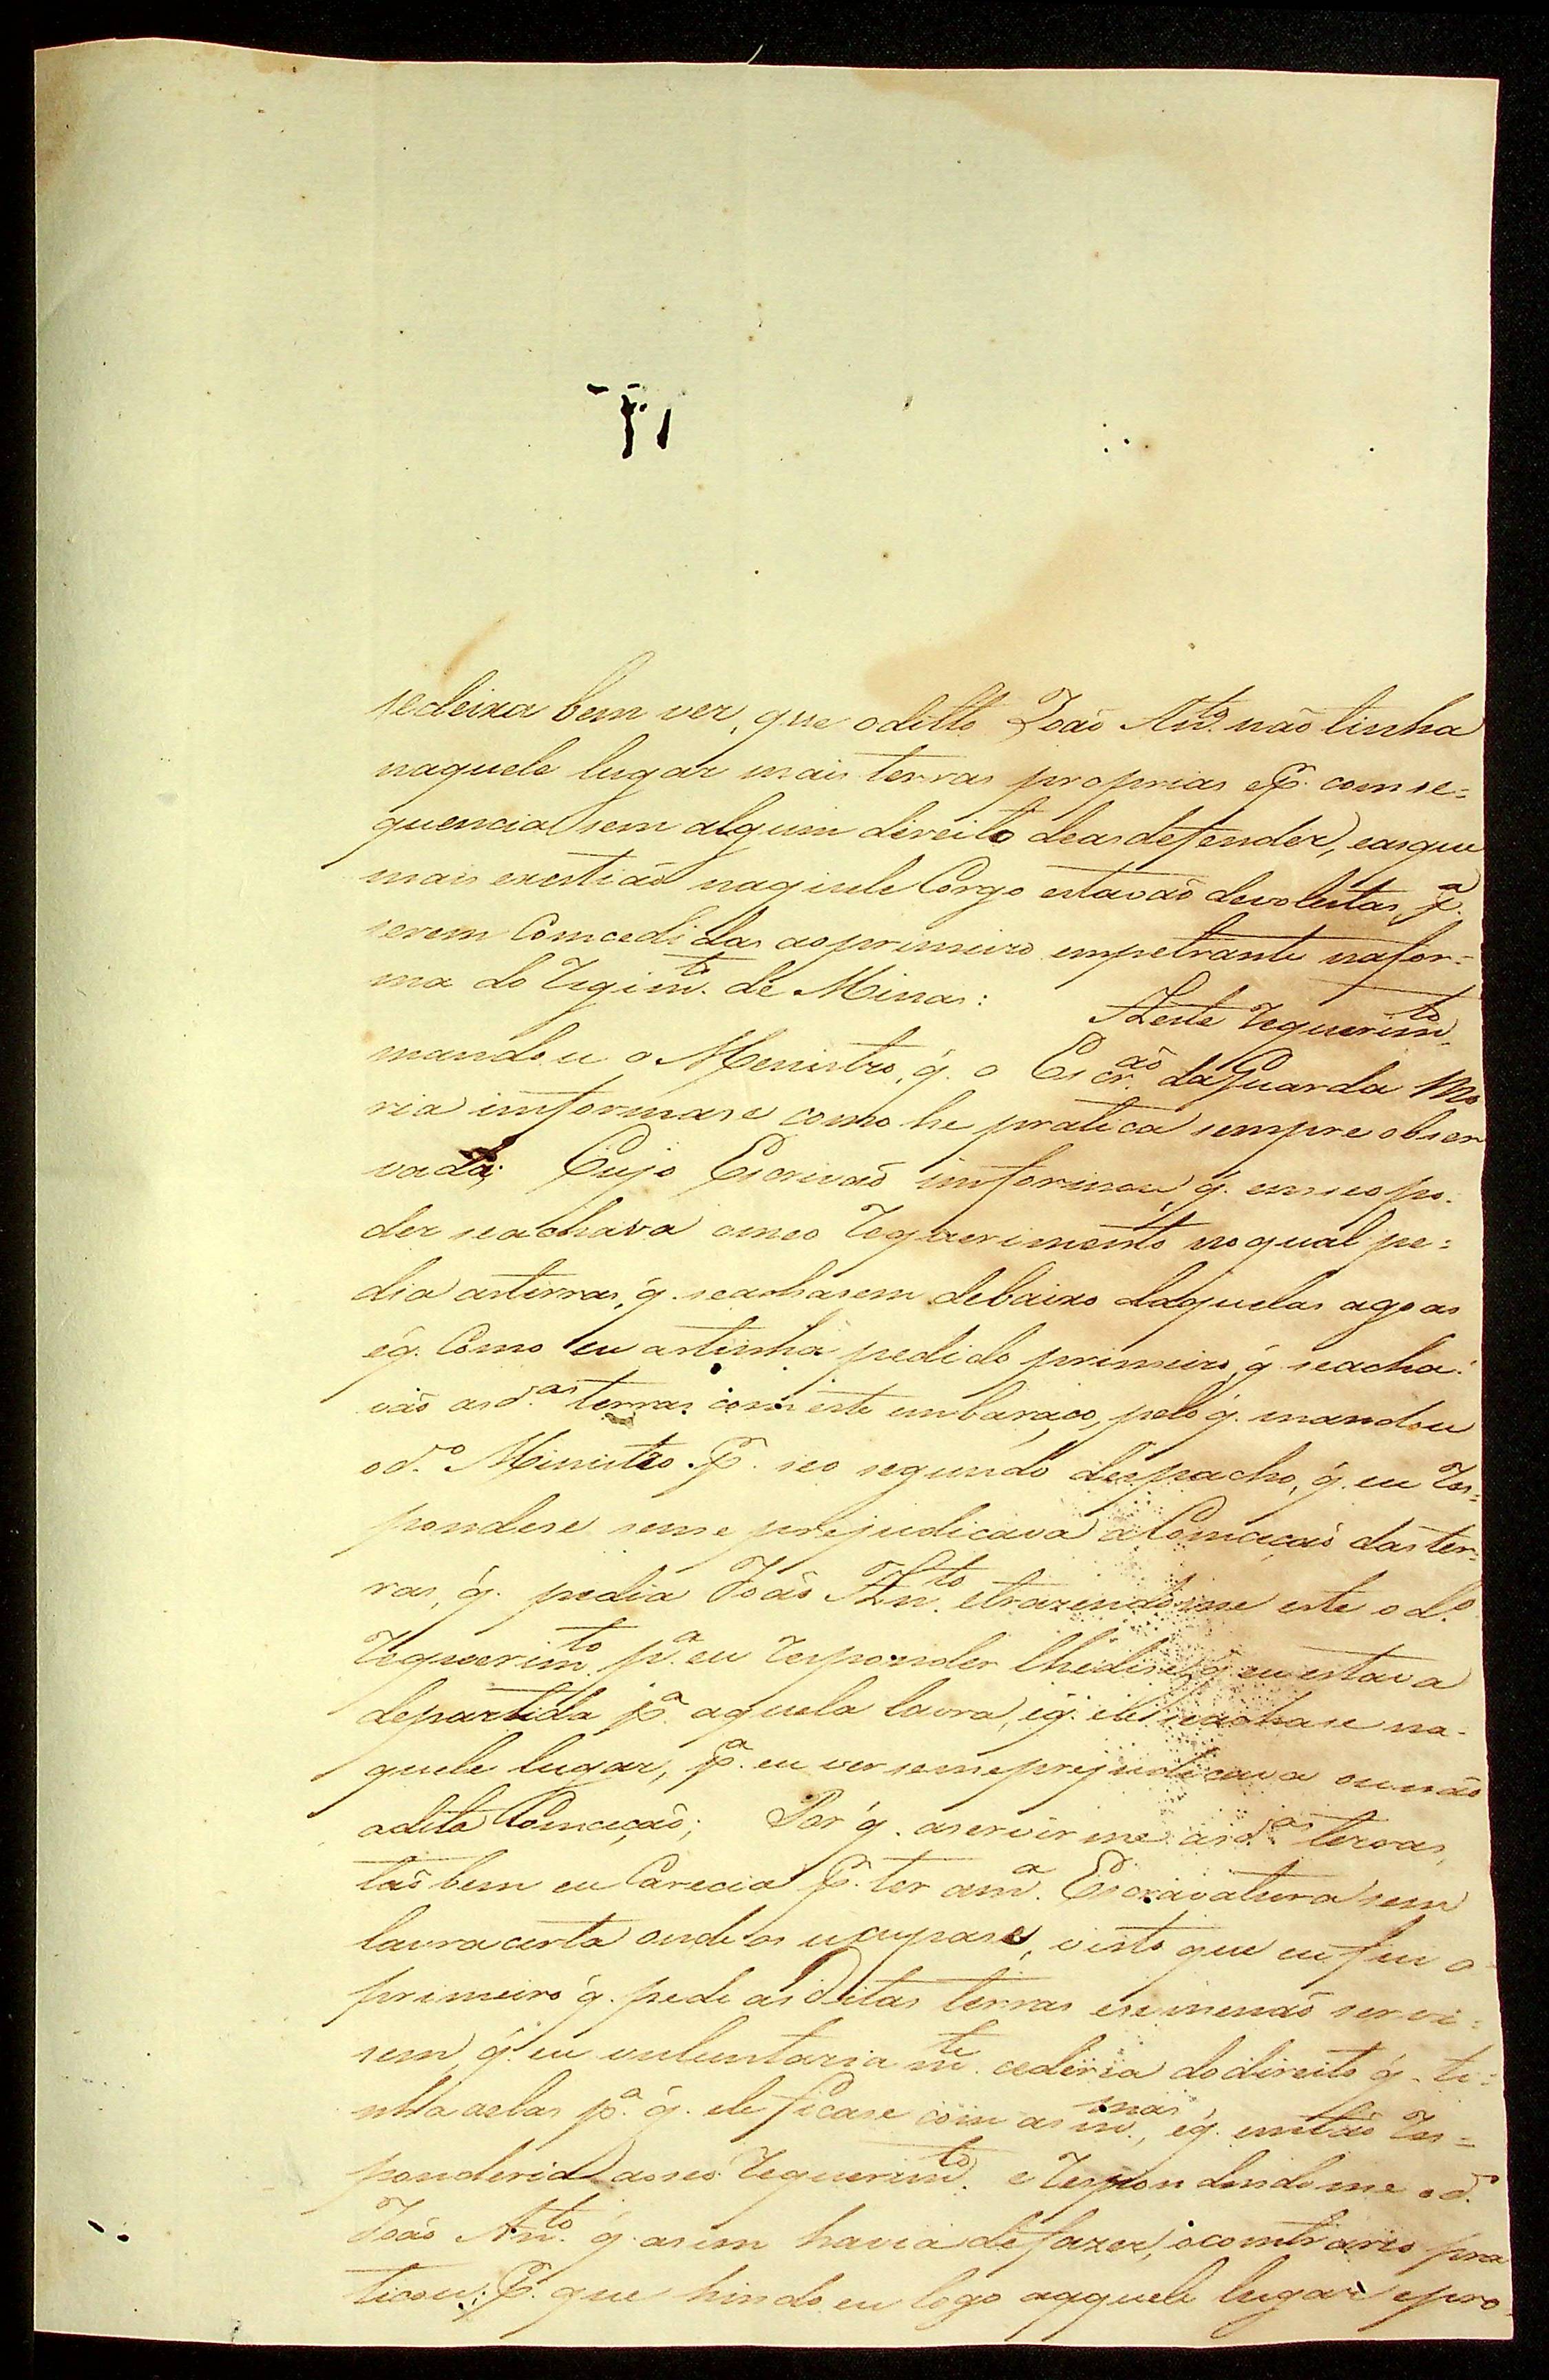 sedeixa bem ver, que oditto João Antº. não tinha
naquele lugar mais terras proprias eP. comse=
quencia sem algum direito deasdefender, easque
mais exestião naquele Corgo estavão devolutas, pª.
serem Comcedidas aoprimeiro empetrante nafor=
ma do Regimtº. de Minas: Aeste requerimtº.
mandou o Menistro, q. o Escrão. daGuarda Mo
ria imformase como he pratica sempre obser
vada; Cujo Escrivão imformou, q. emseo po-
der seachava omeo Requerimento noqual pe=
dia asterras, q. seachasem debaixo daquelas agoas
eq. Como eu astinha pedido primeiro, q. seacha-
vão asdas. terras com este embaraço, pelo q. mandou
odº. Ministro P. seo segundo despacho, q. eu Res=
pondese seme prejudicava aComceção daster-
ras, q. pedia João Antº. etrazendome este odº.
Requerimtº. pª. eu Responder lhedise, q. eu estava
departida pª. aquela lavra, eq. ele seachase na-
quele lugar, pª. eu ver semeprejudicava ounão
adita Comceção; Por q. aservirme asdas. terras,
tão bem eu Carecia P. ter amª. Escravatura sem
lavra certa onde os ucupase, visto que eu fui o
primeiro q. pede asDitas terras esemenão servi=
sem, q. eu vuluntariamte. cederia dodireito q. ti=
nha aelas pª. q. ele ficase com asmmas., eq. emtão Res=
ponderia aoseo Requerimtº. e Respondendome odº.
João Antº. q. asim havia defazer, ocomtrario pra
ticou; P. que hindo eu logo aaquele lugar epro-